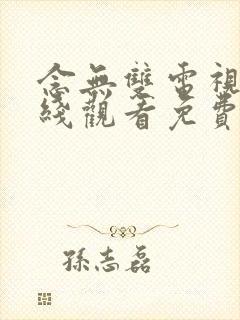 念無雙電視
綫觀看免費
孫志磊